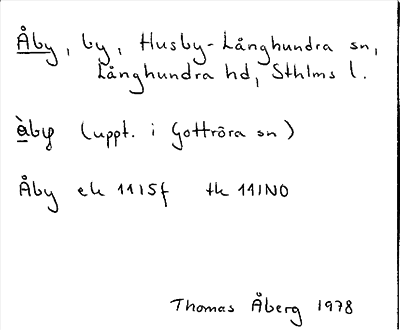 Åby, by, Husby-Långhundra sn,
Långhundra hd, Sthlms l.
å̀bẏ (uppt. i Gottröra sn)
Åby ek 11I5f tk 11INO
Thomas Åberg 1978